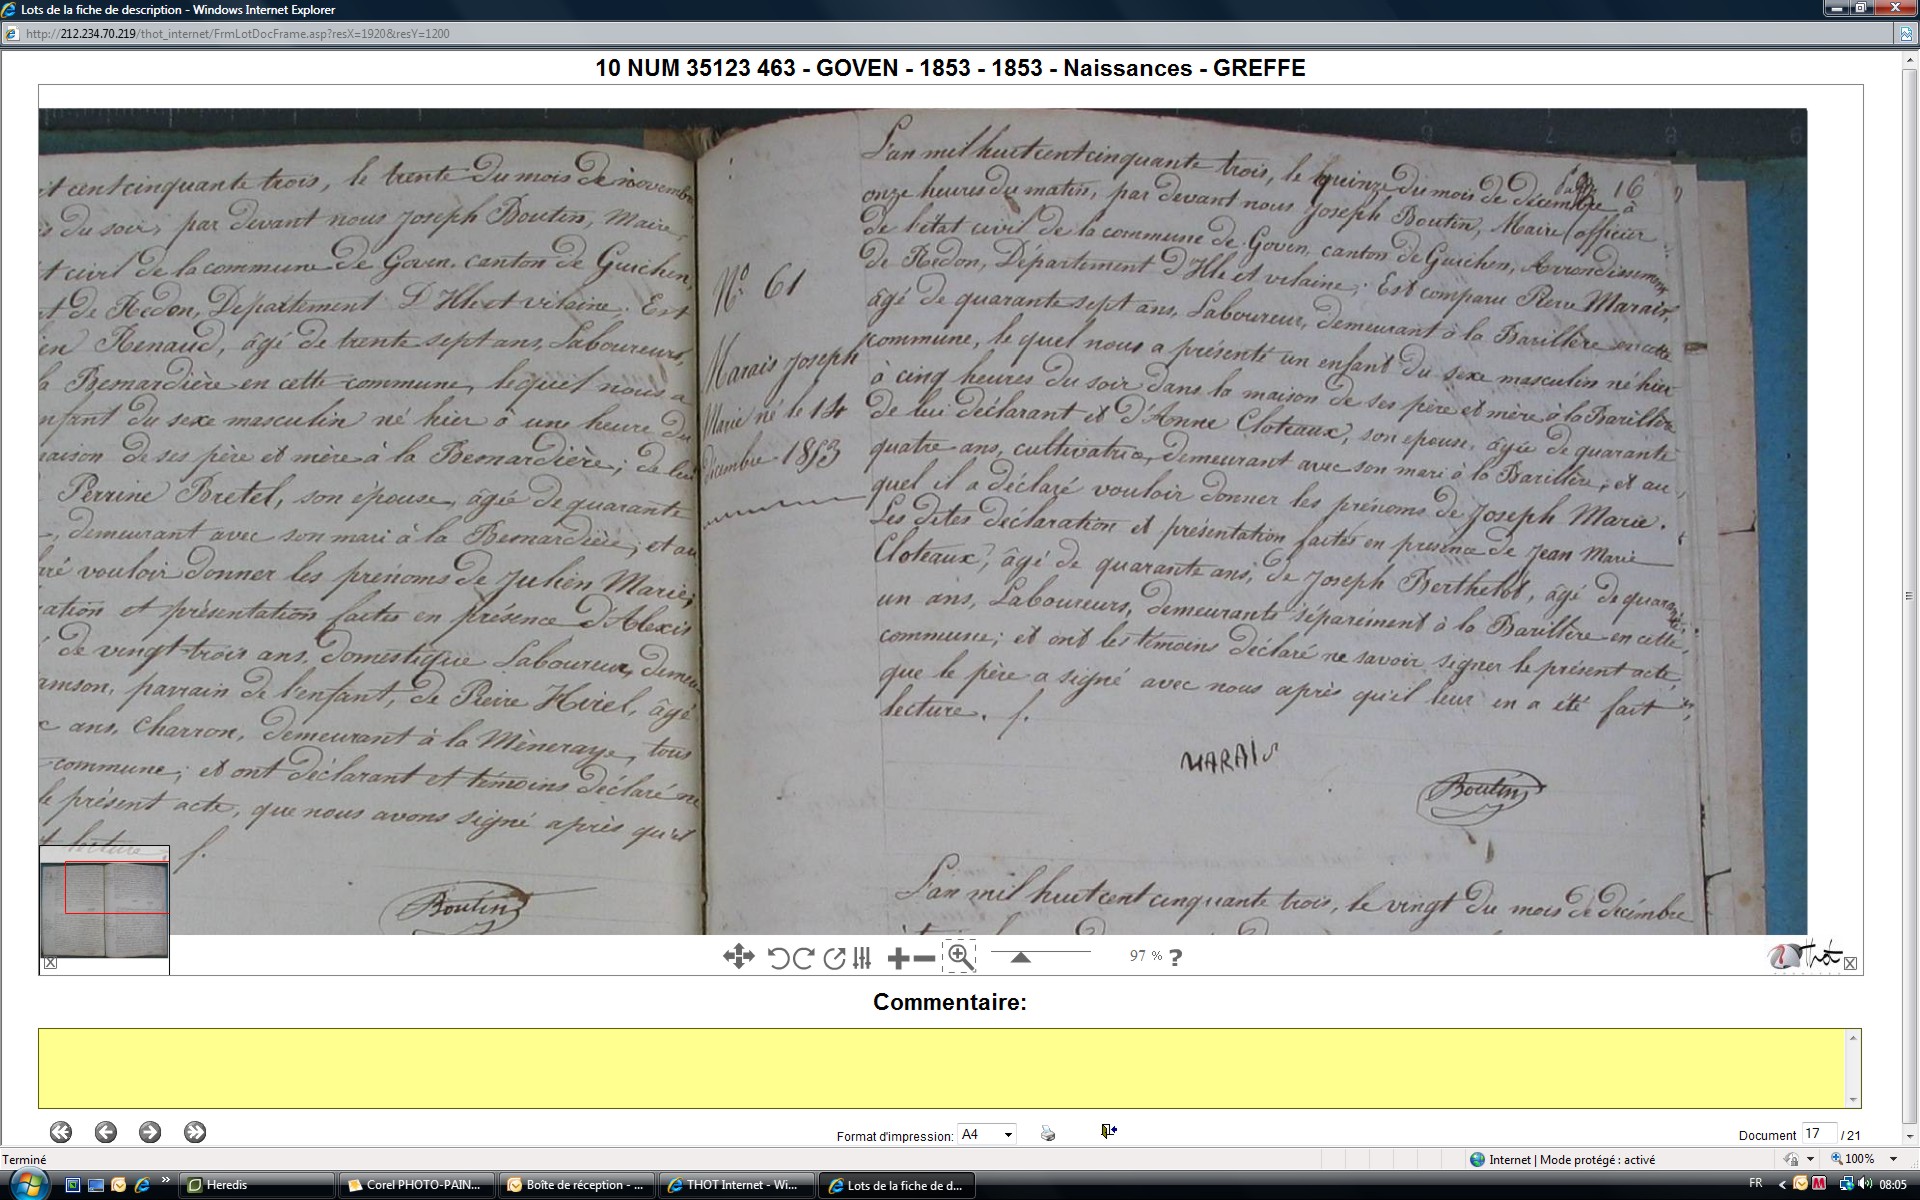 Lots de la fiche de description - Windows Internet Explorer
http://212.234.70.219/thot_internet/FrmLotDocFrame.asp?resX=1920&resY=1200
10 NUM 35123 463 - GOVEN - 1853 - 1853 - Naissances - GREFFE
it cent cinquante trois, le trente du mois de novembre
du soir, par devant nous Joseph Boutin, Maire,
t civil de la commune de Goven, canton de Guichen,
t de Redon, Département d'Ille et vilaine; Est
en Renaud, âgé de trente sept ans, Laboureur,
a Besnardière en cette commune, lequel nous a
nfant du sexe masculin né hier à une heure du
aison de ses père et mère à la Besnardière; de lui
Perrine Bretel, son épouse, âgée de quarante
demeurant avec son mari à la Besnardière; et au
ré vouloir donner les prénoms de Julien Marie;
ation et présentation faites en présence d'Alexis
de vingt-trois ans, domestique Laboureur, demeu
amson, parrain de l'enfant, de Pierre Hirel, âgé
ans, Charron, demeurant à la Mèneraye, tous
commune; et ont déclarant et témoins déclaré ne
le présent acte, que nous avons signé après qu'il
t lecture. f.
Boutin
N° 61
Marais Joseph
Marie né le 14
décembre 1853
16
L'an mil huit cent cinquante trois, le quinze du mois de décembre à
onze heures du matin, par devant nous Joseph Boutin, Maire officier
de l'état civil de la commune de Goven, canton de Guichen, Arrondissement
de Redon, Département d'Ille et vilaine; Est comparu Pierre Marais,
âgé de quarante sept ans, Laboureur, demeurant à la Barillère en cette
commune, le quel nous a présenté un enfant du sexe masculin né hier
à cinq heures du soir dans la maison de ses père et mère à la Barillère
de lui déclarant et d'Anne Cloteaux, son épouse, âgée de quarante
quatre ans, cultivatrice, demeurant avec son mari à la Barillère; et au
quel il a déclaré vouloir donner les prénoms de Joseph Marie.
Les dites déclaration et présentation faites en présence de Jean Marie
Cloteaux, âgé de quarante ans, de Joseph Berthelot, âgé de quarante
un ans, Laboureurs, demeurants séparément à la Barillère en cette
commune; et ont les témoins déclaré ne savoir signer le présent acte,
que le père a signé avec nous après qu'il leur en a été fait
lecture. f.
MARAIS
Boutin
L'an mil huit cent cinquante trois, le vingt du mois de décembre
97 % ?
Thot
Commentaire:
Format d'impression: A4
Document 17 / 21
Terminé
Internet | Mode protégé : activé
100%
Heredis
Corel PHOTO-PAIN...
Boîte de réception - ...
THOT Internet - Wi...
Lots de la fiche de d...
FR
08:05